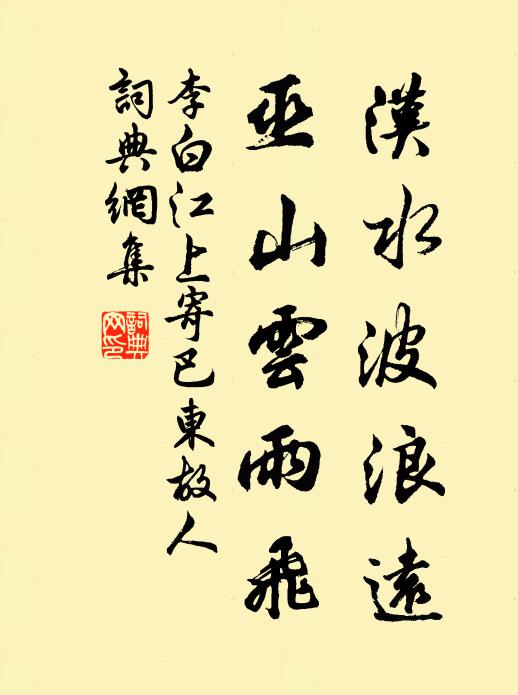 漢水波浪遠
巫山雲雨飛
李白江上寄巴東故人
詞典網集
詞典網印